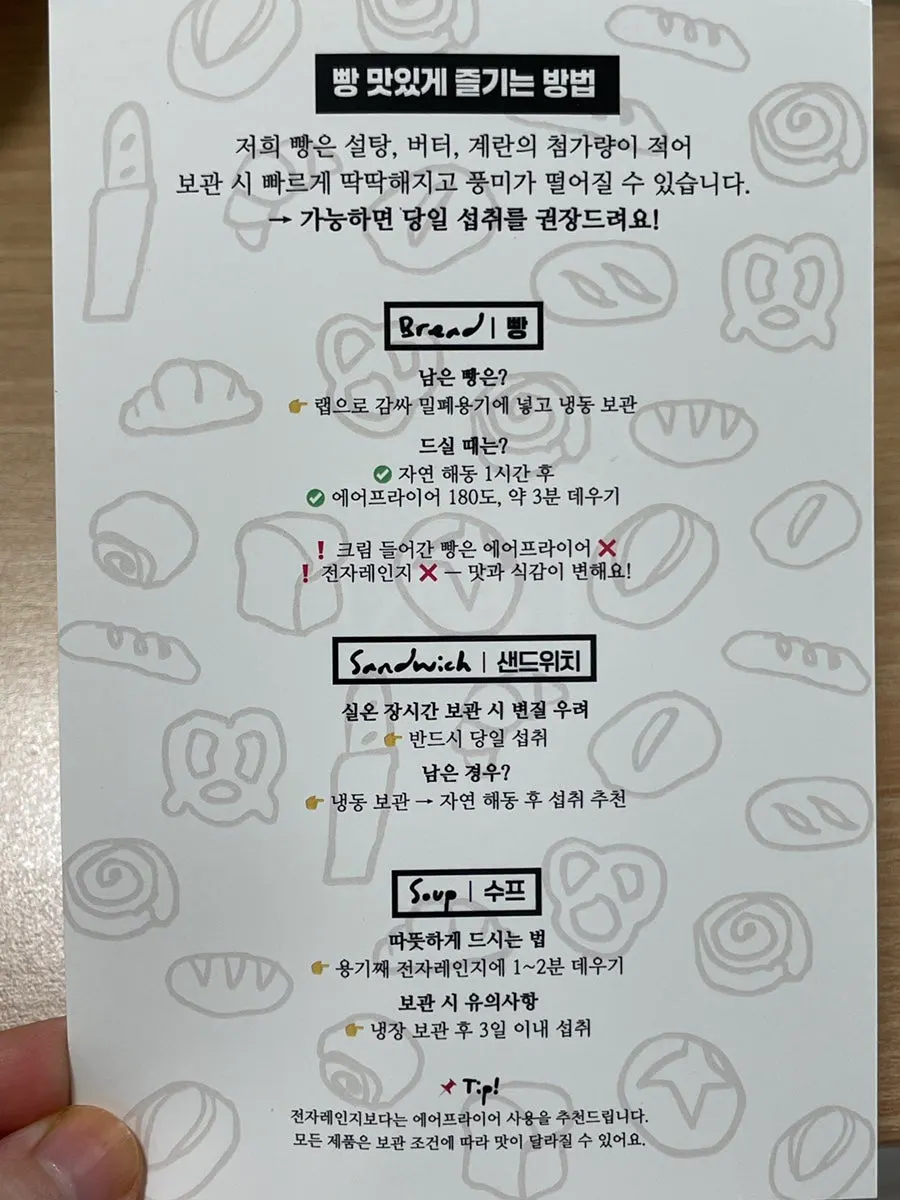 빵 맛있게 즐기는 방법
저희 빵은 설탕, 버터, 계란의 첨가량이 적어
보관 시 빠르게 딱딱해지고 풍미가 떨어질 수 있습니다.
→ 가능하면 당일 섭취를 권장드려요!
Bread | 빵
남은 빵은?
👉 랩으로 감싸 밀폐용기에 넣고 냉동 보관
드실 때는?
✅ 자연 해동 1시간 후
✅ 에어프라이어 180도, 약 3분 데우기
❗ 크림 들어간 빵은 에어프라이어 ❌
❗ 전자레인지 ❌ — 맛과 식감이 변해요!
Sandwich | 샌드위치
실온 장시간 보관 시 변질 우려
👉 반드시 당일 섭취
남은 경우?
👉 냉동 보관 → 자연 해동 후 섭취 추천
Soup | 수프
따뜻하게 드시는 법
👉 용기째 전자레인지에 1~2분 데우기
보관 시 유의사항
👉 냉장 보관 후 3일 이내 섭취
📌 Tip!
전자레인지보다는 에어프라이어 사용을 추천드립니다.
모든 제품은 보관 조건에 따라 맛이 달라질 수 있어요.